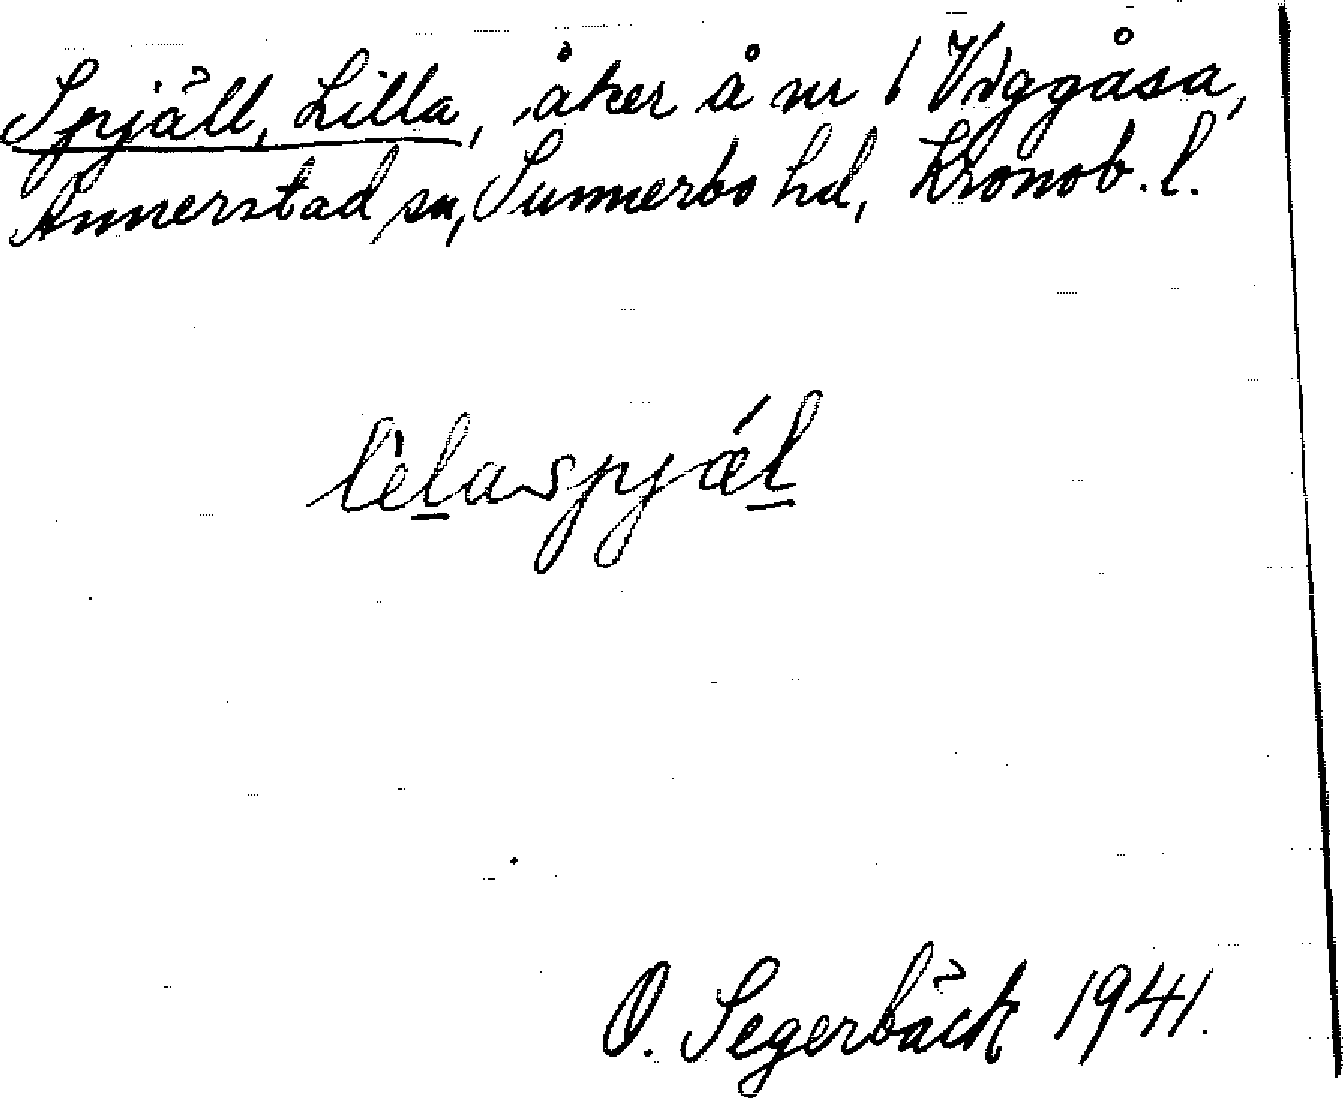 Spjäll, Lilla, åker å nr 1 Viggåsa,
Annerstad sn, Sunnerbo hd, Kronob. l.
lèlaspjǽl
O. Segerbäck 1941.